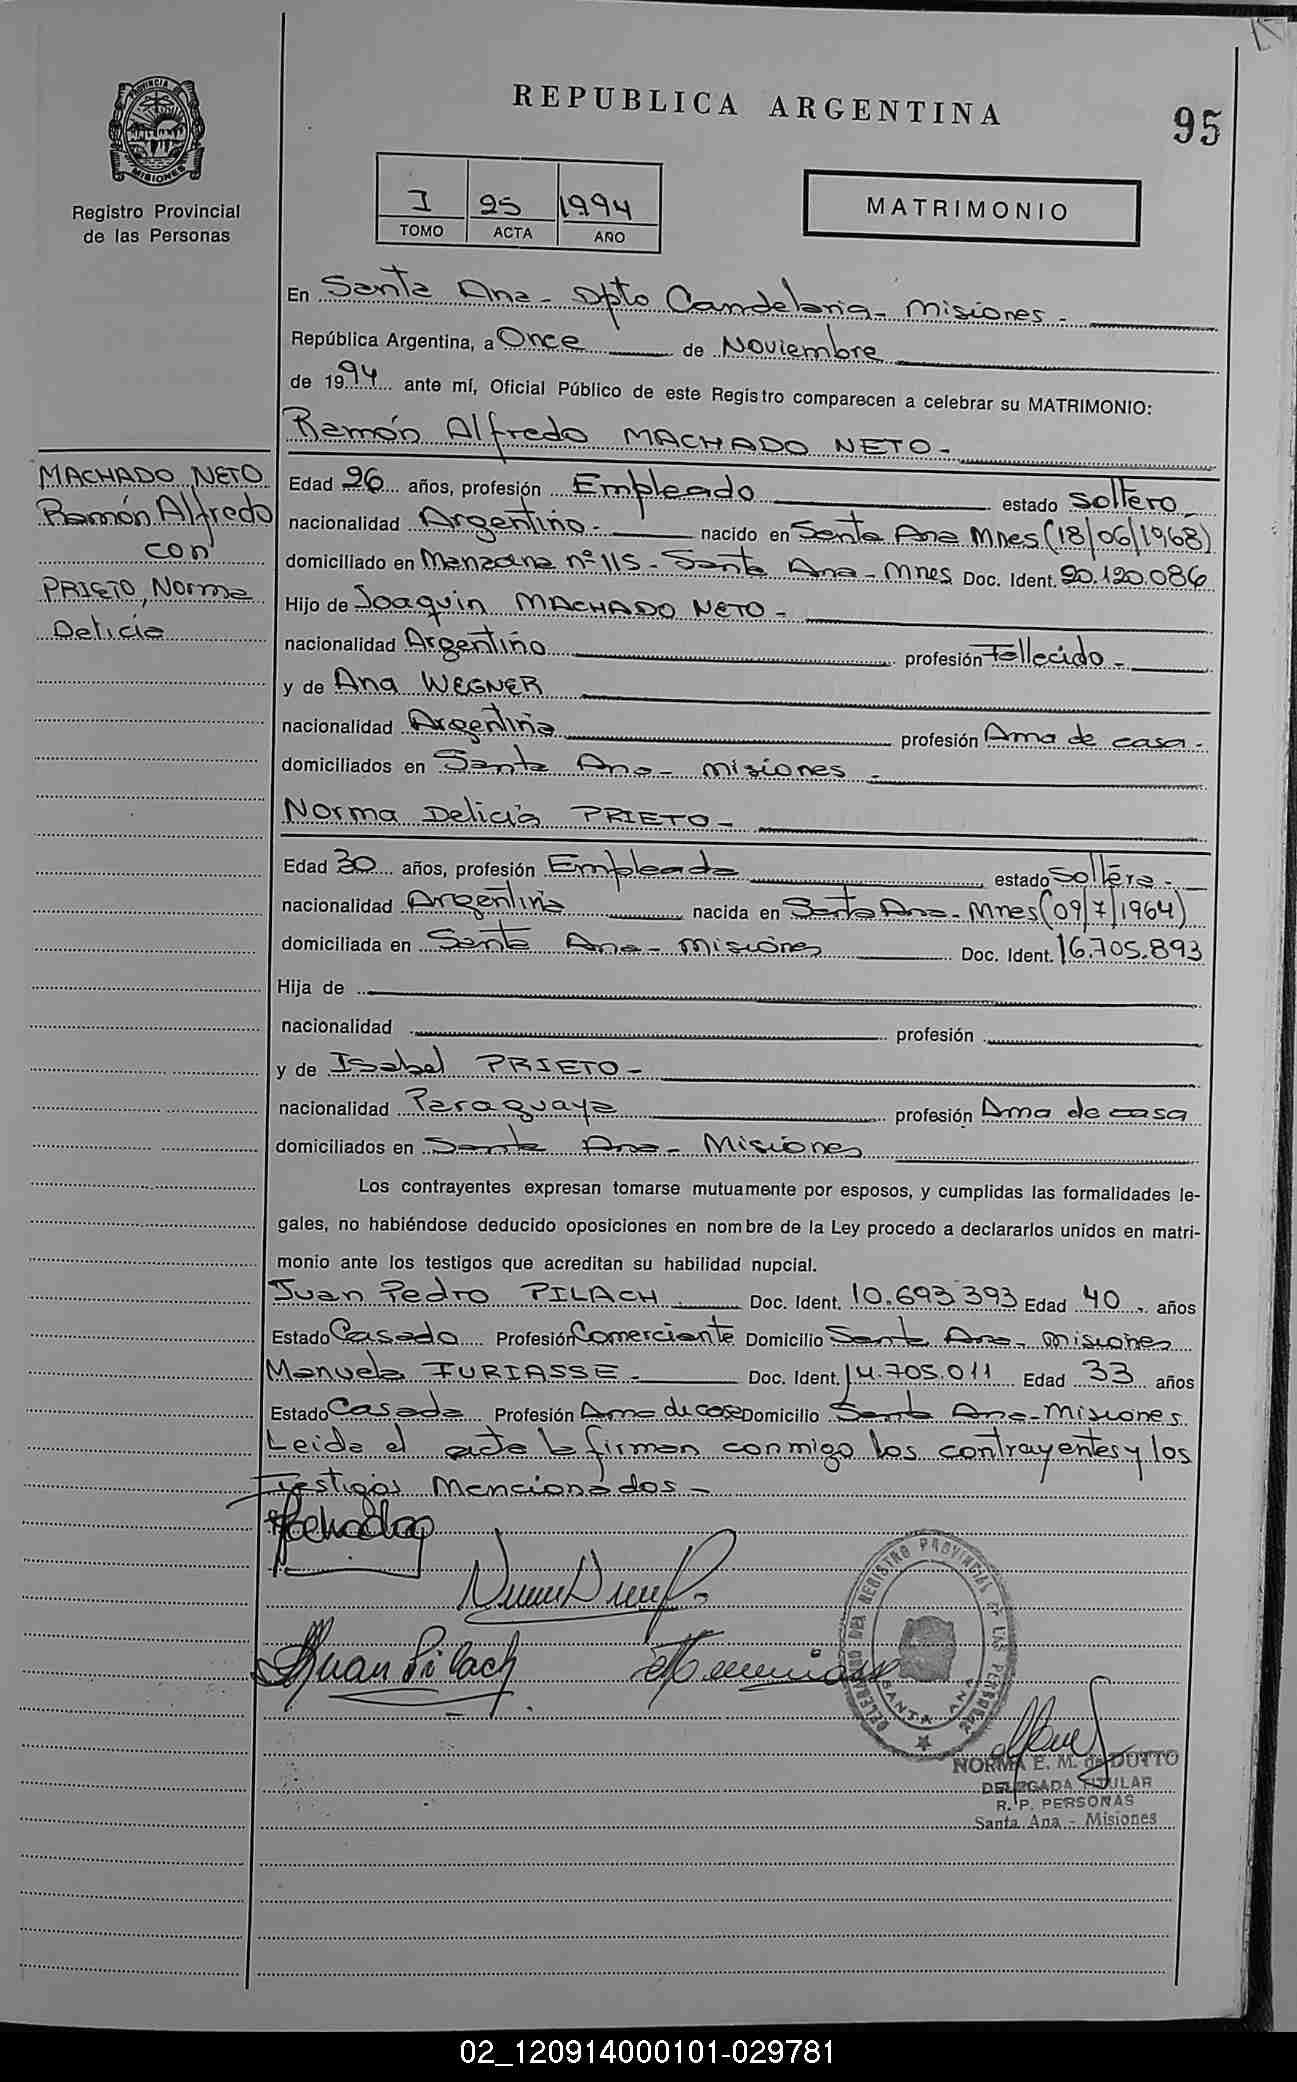 REPUBLICA ARGENTINA
95
PROVINCIA DE
MISIONES
Registro Provincial
de las Personas
I 95 1994
TOMO ACTA AÑO
MATRIMONIO
En Santa Ana - Dpto Candelaria - Misiones -
República Argentina, a Once de Noviembre
de 1994 ante mí, Oficial Público de este Registro comparecen a celebrar su MATRIMONIO:
Ramón Alfredo MACHADO NETO -
MACHADO NETO
Ramón Alfredo
con
PRIETO, Norma
Delicia
Edad 26 años, profesión Empleado estado soltero
nacionalidad Argentino - nacido en Santa Ana Mnes (18/06/1968)
domiciliado en Manzana nº 115 - Santa Ana - Mnes Doc. Ident. 20.120.086
Hijo de Joaquin MACHADO NETO -
nacionalidad Argentino profesión Fallecido -
y de Ana WEGNER
nacionalidad Argentina profesión Ama de casa -
domiciliados en Santa Ana - Misiones -
Norma Delicia PRIETO -
Edad 30 años, profesión Empleada estado soltera -
nacionalidad Argentina nacida en Santa Ana - Mnes (09/7/1964)
domiciliada en Santa Ana - Misiones Doc. Ident. 16.705.893
Hija de
nacionalidad profesión
y de Isabel PRIETO -
nacionalidad Paraguaya profesión Ama de casa
domiciliados en Santa Ana - Misiones
Los contrayentes expresan tomarse mutuamente por esposos, y cumplidas las formalidades le-
gales, no habiéndose deducido oposiciones en nombre de la Ley procedo a declararlos unidos en matri-
monio ante los testigos que acreditan su habilidad nupcial.
Juan Pedro PILACH Doc. Ident. 10.693.393 Edad 40 años
Estado Casado Profesión Comerciante Domicilio Santa Ana - Misiones
Manuela IURIASSE - Doc. Ident. 14.705.011 Edad 33 años
Estado Casada Profesión Ama de casa Domicilio Santa Ana - Misiones
Leida el acta la firman conmigo los contrayentes y los
Testigos Mencionados -
Juan Pilach
DELEGADO DEL REGISTRO PROVINCIAL DE LAS PERSONAS
SANTA ANA
NORMA E. M. de DUTTO
DELEGADA TITULAR
R. P. PERSONAS
Santa Ana - Misiones
02_120914000101-029781